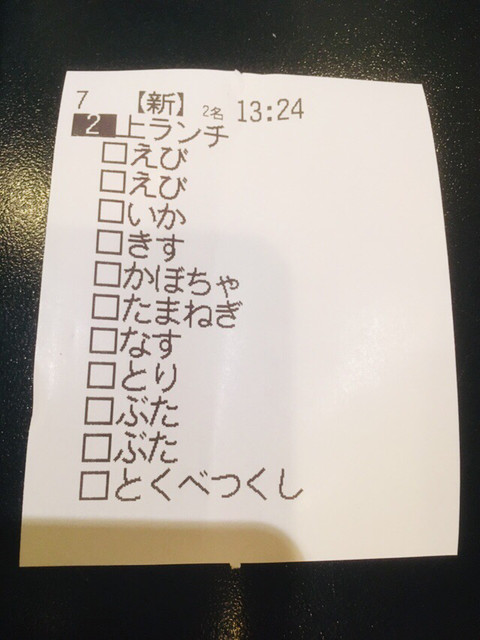 7 【新】 2名 13:24
2 上ランチ
□えび
□えび
□いか
□きす
□かぼちゃ
□たまねぎ
□なす
□とり
□ぶた
□ぶた
□とくべつくし